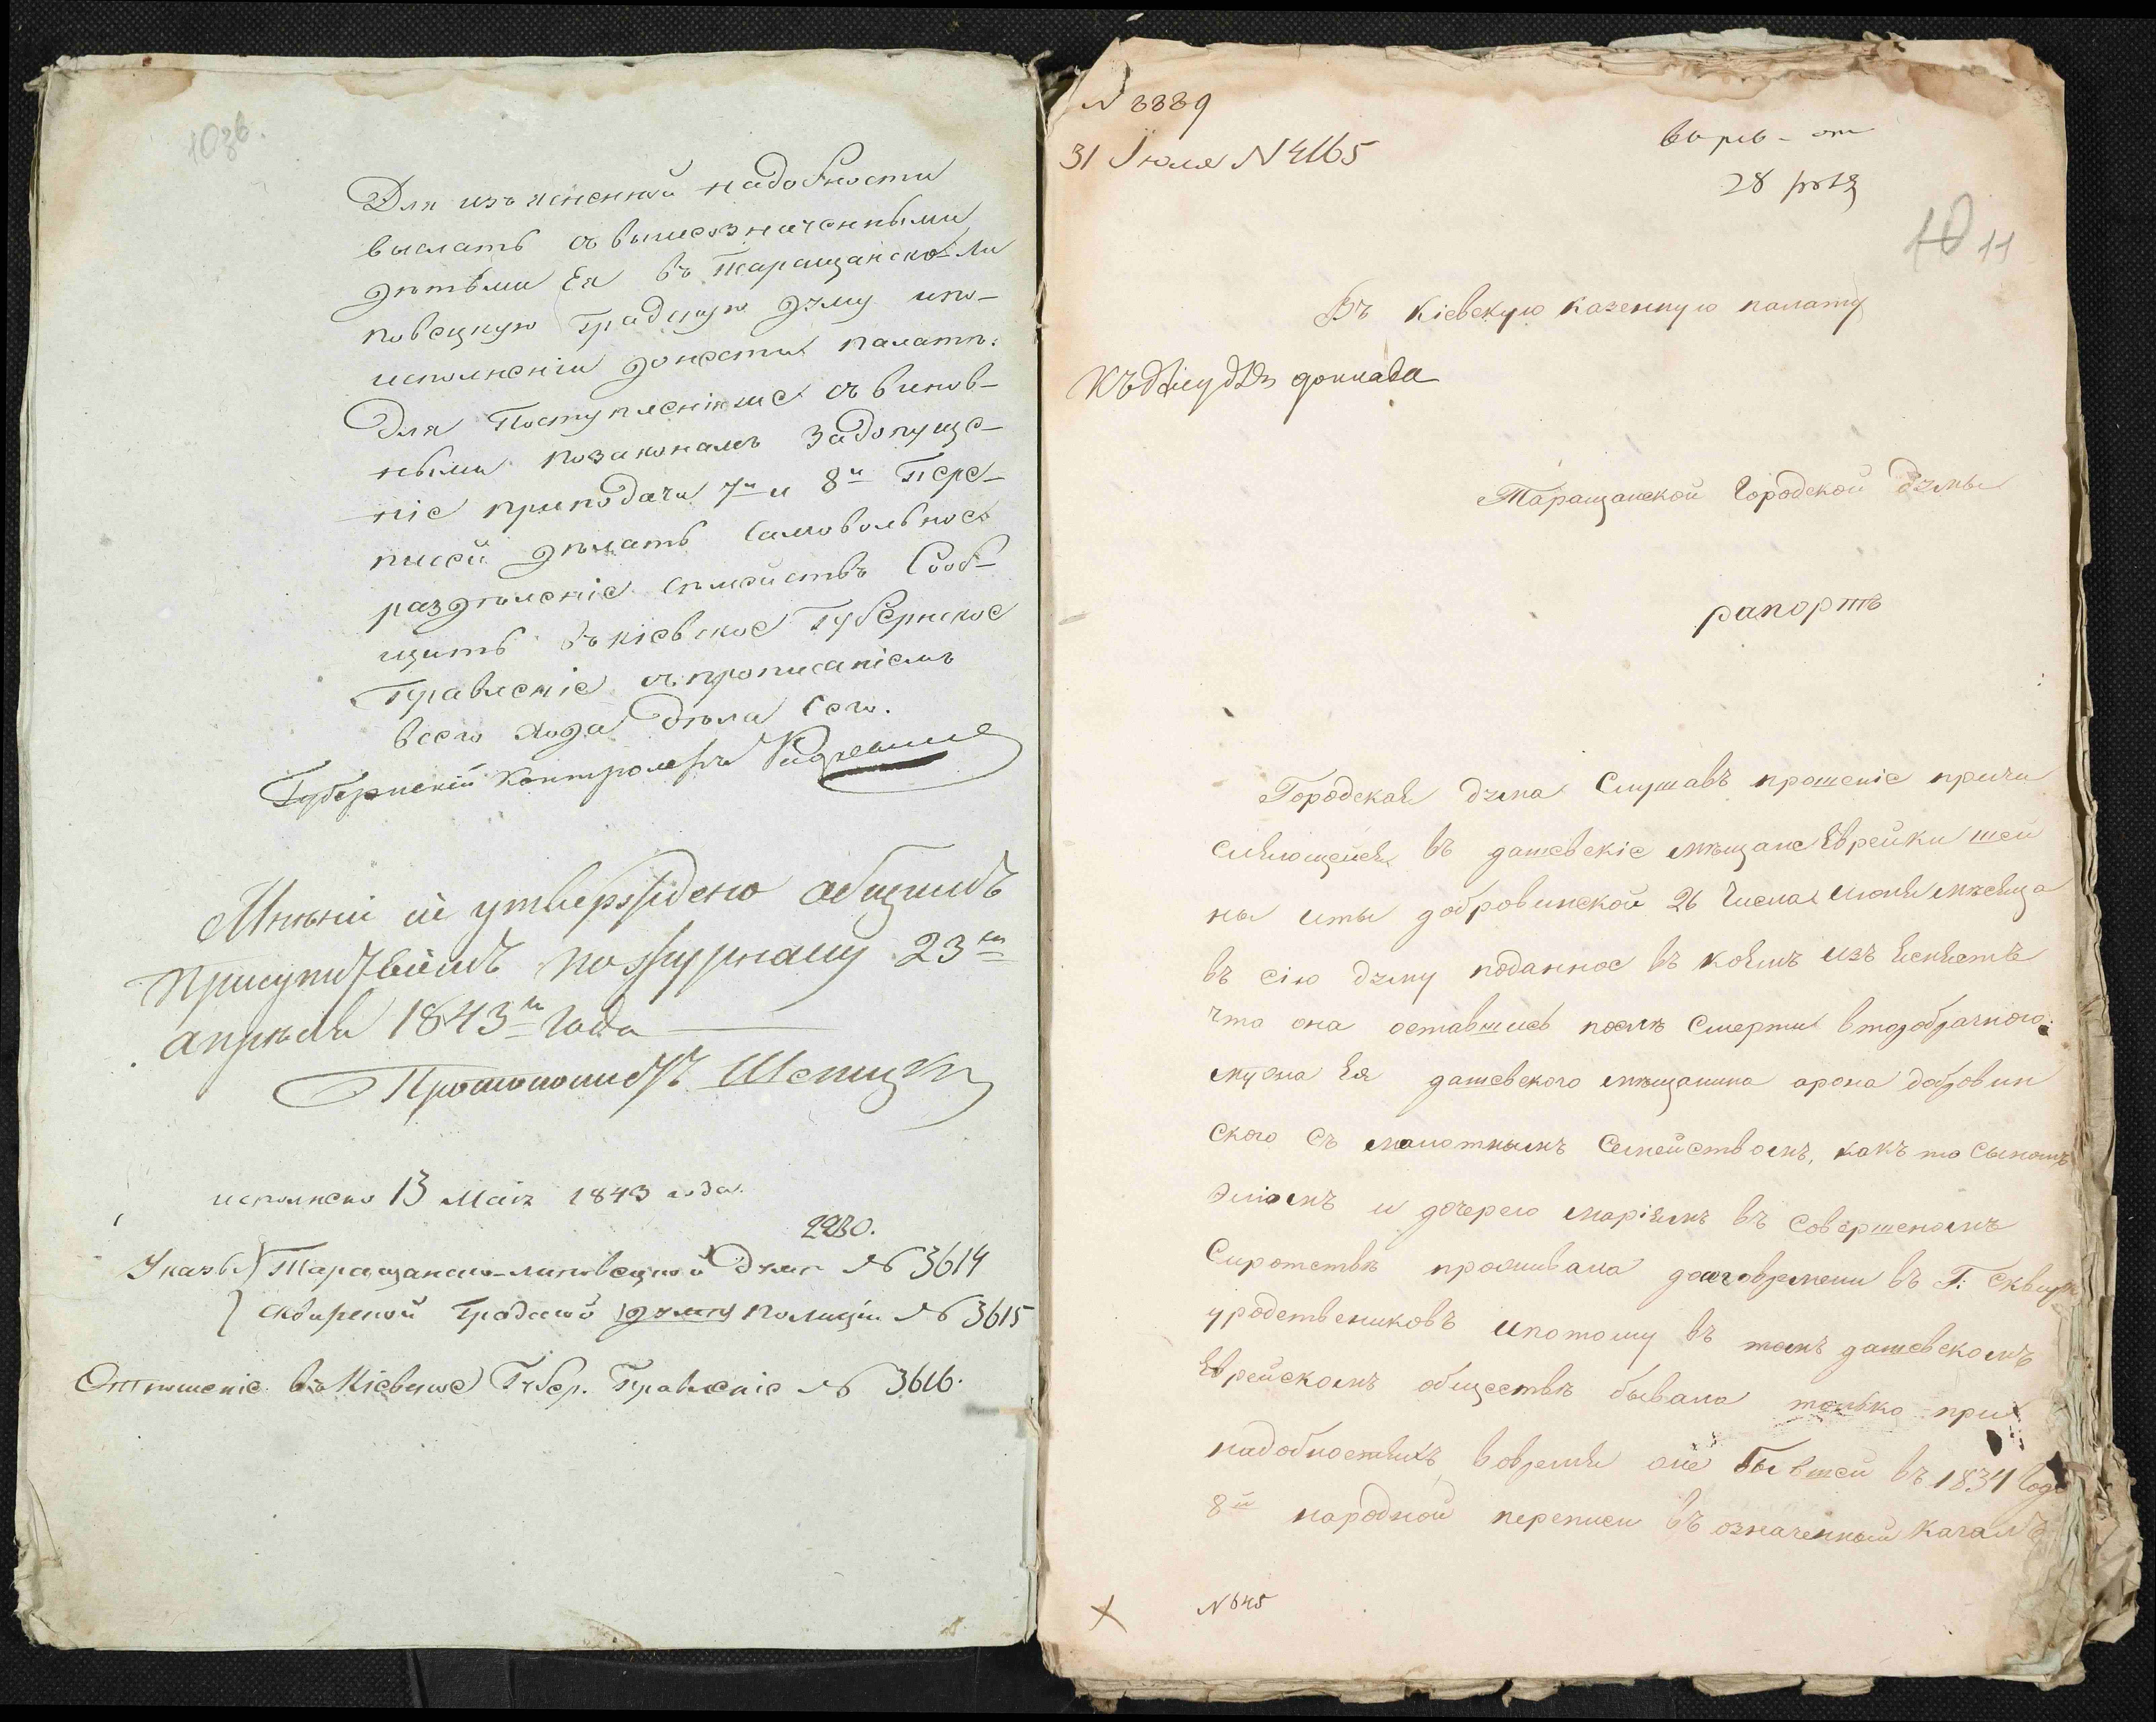 103б.
Для изъясненной надобности
выслать съ вышеозначенными
дѣтьми Ея въ Таращанско-Ли
повецкую Градскую думу ипо-
исполненіи донести палатѣ.
Для Поступленія съ винов-
ными позаконамъ задопуще-
ніе приподачи 7й и 8й Пере-
писей дѣлать Самовольное
раздѣленіе Семействъ Сооб-
щить въ кіевское Губернское
Правленіе съ прописаніемъ
всего хода дѣла сего.
Губернскій Контролеръ
Мнѣніе сіе утверждено общимъ
Присутствіемъ по журналу 23го
апрѣля 1843го Года
Протоколистъ
исполнено 13 Маія 1843 года.
2230.
Указы Таращанско-липовецкой Думѣ № 3614
сквирской Градской думу Полиціи № 3615
Отношеніе въ Кіевское Губер. Правленіе № 3616.
N 8889
31 Іюля N 4165
28
10 11
Въ Кіевскую Казенную палату
доклада
Таращанской Городской думы
рапортъ
Городская дума Слушавъ прошеніе причи
сляющейся въ дашевскіе мѣщане Еврейки шей
ны иты добровинской 26 Числа июня мѣсяца
въ сію думу поданное въ коемъ изъясняетъ
что она оставшись послѣ Смерти второбрачного
мужа Ея дашевского мѣщанина арона добровин
ского съ малотнымъ Семействомъ, какъ то сыномъ
эліомъ и дочерею маріямъ въ совершеномъ
Сиротствѣ проживала долговремени въ Г. Сквирѣ
уродствениковъ ипотому въ томъ дашевскомъ
Еврейскомъ обществѣ бывала только при
надобностяхъ, вовремя оне бывшей въ 1834 Годѣ
8й народной переписи въ означенный кагалъ
N 645